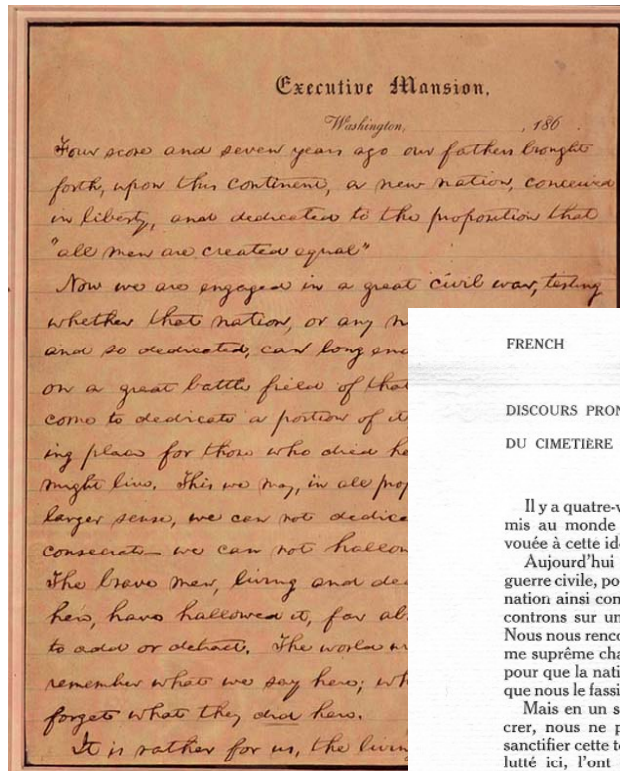 Executive Mansion,
Washington, , 186 .
Four score and seven years ago our fathers brought
forth, upon this continent, a new nation, conceived
in liberty, and dedicated to the proposition that
"all men are created equal"
Now we are engaged in a great civil war, testing
whether that nation, or any n
and so dedicated, can long end
on a great battle field of that
come to dedicate a portion of it
ing place for those who died he
might live. This we may, in all prop
larger sense, we can not dedica
consecrate— we can not hallow
The brave men, living and dea
here, have hallowed it, far ab
to add or detract. The world w
remember what we say here; wh
forget what they did here.
It is rather for us, the livin
FRENCH
DISCOURS PRON
DU CIMETIÈRE
Il y a quatre-v
mis au monde
vouée à cette id
Aujourd'hui
guerre civile, po
nation ainsi con
controns sur un
Nous nous renco
me suprême cha
pour que la nati
que nous le fassi
Mais en un s
crer, nous ne p
sanctifier cette t
lutté ici, l'ont